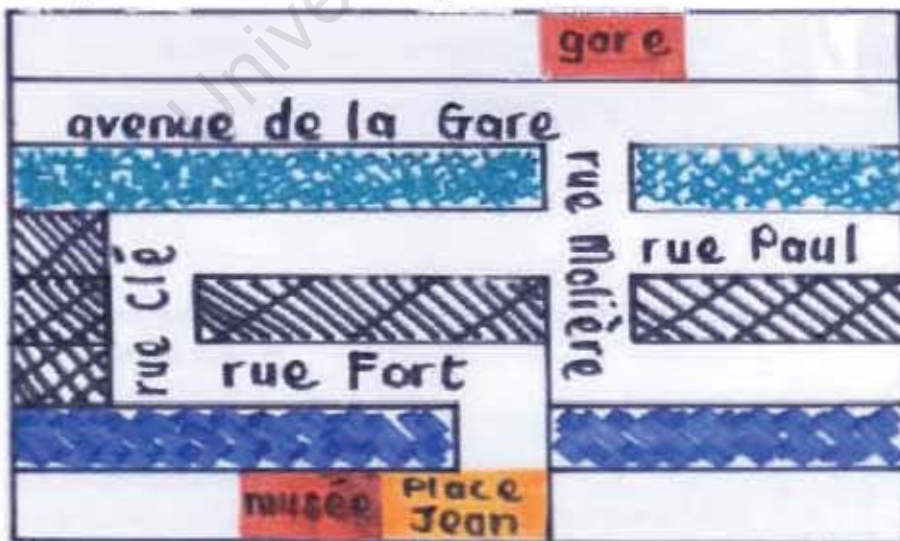 gare
avenue de la Gare
rue Molière
rue Paul
rue Clé
rue Fort
musée
Place
Jean